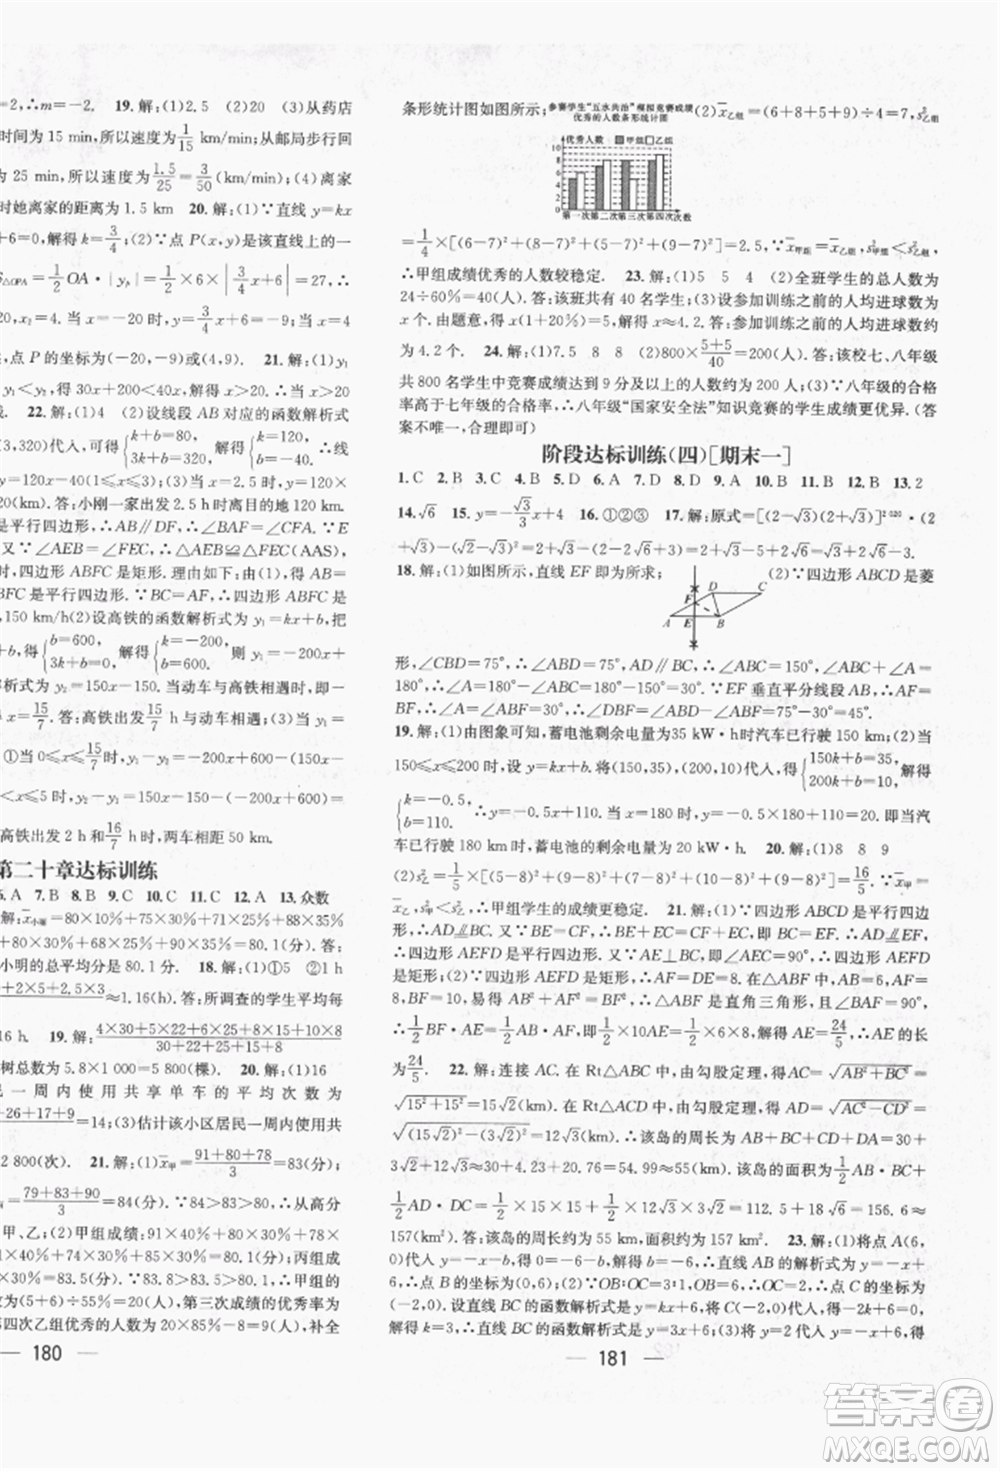 =2,∴m=-2. 19.解:(1)25 15 (2)20 (3)从药店
时间为 15 min,所以速度为1/15 km/min;从邮局步行
25 min,所以速度为1.5/25=3/50(km/min);(4)离家
时她离家的距离为 1.5 km 20.解:(1)∵直线 y=kx
+6=0,解得 k=3/4;(2)∵点 P(x,y)是该直线上的一
S△OPA=1/2 OA·|yP|=1/2×6×|3/4x+6|=27,∴
20,x2=4. 当 x=4 时,y=3/4×4+6=9;当 x=-20
,点 P 的坐标为(-20,-9)或(4,9). 21.解:(1)y1
22.解:(1)4 (2)设线段 AB 对应的函数解析式
(3,320)代入,得{k+b=80, 3k+b=320, 解得{k=120, b=-40, ∴线
y=120x-40(1≤x≤3);(3)当x=
80=120(km).答:小刚一家出发 2.5 h 时离目的地 120 km.
是平行四边形,∴AB∥DF,∴∠BAF=∠CFA.∵E
又∵∠AEB=∠FEC,∴△AEB≌△FEC(AAS).
,四边形 ABFC 是矩形.理由如下:由(1)得 AB=
BFC 是平行四边形.∵BC=AF,∴四边形 ABFC
,150 km/h(2)设高铁的函数解析式为 y1=kx+b
{b=600, 3k+b=0, 解得{k=-200, b=600, 则函数解析式为 y1=-200x
解析式为 y2=150x-150.当动车与高铁相遇时,即-
x=15/7.答:高铁出发15/7 h 与动车相遇;(3)当高铁
≤x≤15/7时,y1-y2=-200x+600-(150x-150)
<x≤5 时,y2-y1=150x-150-(-200x+600)=
高铁出发 2 h 和16/7 h 时,两车相距 50 km.
第二十章达标训练
6.A 7.B 8.B 9.C 10.C 11.C 12.A 13.众数
解:x̄小丽=80×10%+75×30%+71×25%+88×35%
×10%+80×30%+68×25%+90×35%=80.1(分).答:
小明的总平均分是 80.1 分. 18.解:(1)5 1 h
+2×5+2.5×3≈1.16(h).答:所调查的学生平均每
16 h. 19.解:(4×30+5×22+6×25+8×15+10×8)/(30+22+25+15+8)
树总数为 5.8×1 000=5 800(棵). 20.解:(1)16
民一周内使用共享单车的平均次数为
+26+17+9=14;(3)估计该小区居民一周内使用共
2 800(次). 21.解:(1)x̄甲=(91+80+78)/3=83(分),x̄乙
=(79+83+90)/3=84(分).∵84>83.67>83,∴从高分
甲、乙;(2)甲组成绩:91×40%+80×30%+78×
×40%+80×30%=83.5(分);丙组成
×40%+90×30%=83.5(分).∴甲组的
为(5+6)÷55%=20(人),第三次成绩的优秀率为
第四次乙组优秀的人数为 20×85%-8=9(人),补全
180
条形统计图如图所示;(2)x̄乙组=(6+8+5+9)÷4=7,s²乙组
参赛学生“五水共治”模拟竞赛成绩
优秀的人数条形统计图
优秀人数 甲组 乙组
10
8
6
4
2
0
第一次第二次第三次第四次次数
=1/4×[(6-7)²+(8-7)²+(5-7)²+(9-7)²]=2.5,∵x̄甲组=x̄乙组,s²甲组<s²乙组,
∴甲组成绩优秀的人数较稳定. 23.解:(1)5 5 4 (2)全班学生的总人数为
24÷60%=40(人).答:该班共有 40 名学生;(3)设参加训练之前的人均进球数为
x 个.由题意,得(1+25%)x=5,解得 x≈4.2.答:参加训练之前的人均进球数约
为 4.2 个. 24.解:(1)7.5 8 8 (2)800×(5+5)/40=200(人).答:该校七、八年级
共 800 名学生中竞赛成绩达到 9 分及以上的人数约为 200 人;(3)∵八年级的合格
率高于七年级的合格率,∴八年级“国家安全法”知识竞赛的学生成绩更优异.(答
案不唯一,合理即可)
阶段达标训练(四)[期末一]
1.C 2.B 3.C 4.B 5.D 6.A 7.D 8.D 9.A 10.B 11.B 12.A 13.2
14.√6 15.y=-√3/3x+4 16.①②③ 17.解:原式=[(2-√3)(2+√3)]²⁰²⁰·(2
+√3)-|√2-√3|-√2=2+√3-(√3-√2)-√2=2+√3-√3+√2-√2=2.
18.解:(1)如图所示,直线 EF 即为所求; (2)∵四边形 ABCD 是菱
D C F A E B
形,∠CBD=75°,∴∠ABD=∠CBD=75°,DC∥AB,∴∠ABC=150°,∵∠ABC+∠A=
180°,∴∠A=180°-∠ABC=180°-150°=30°.∵EF 垂直平分线段 AB,∴AF=
BF,∴∠A=∠FBA=30°,∴∠DBF=∠ABD-∠FBA=75°-30°=45°.
19.解:(1)由图象可知,蓄电池剩余电量为35 kW·h时汽车已行驶了 150 km;(2)当
150≤x≤200 时,设 y=kx+b,将(150,35),(200,10)代入,得{150k+b=35, 200k+b=10, 解得
{k=-0.5, b=110. ∴y=-0.5x+110.当 x=180 时,y=-0.5×180+110=20.答:当汽
车已行驶 180 km 时,蓄电池的剩余电量为 20 kW·h. 20.解:(1)8 8 9
(2)s²乙=1/5×[(5-8)²+(9-8)²+(7-8)²+(10-8)²+(9-8)²]=16/5.∵x̄甲=
x̄乙,s²甲<s²乙,∴甲组学生投篮成绩更稳定. 21.解:(1)∵四边形 ABCD 是平行四边
形,∴AD∥BC,AD=BC.又∵BE=CF,∴BC=EF,∴AD=EF.∵AD∥EF,
∴四边形 AEFD 是平行四边形.又∵AE⊥BC,∴∠AEF=90°,∴平行四边形
AEFD 是矩形;(2)∵四边形 AEFD 是矩形,∴AF=DE=8.在△ABF 中,AB=6,
BF=10,易得 AB²+AF²=BF²,∴△ABF 是直角三角形,且∠BAF=90°,
∴1/2BF·AE=1/2AB·AF,∴1/2×10·AE=1/2×6×8,解得 AE=24/5,∴AE 的长
为24/5. 22.解:连接 AC.在 Rt△ABC 中,由勾股定理,得 AC=√(AB²+BC²)=
√(15²+15²)=15√2(km).在 Rt△ACD 中,由勾股定理,得 AD=√(AC²-CD²)=
√((15√2)²-(3√2)²)=12√3(km),∴该岛的周长为 AB+BC+CD+AD=15+15+
3√2+12√3≈30+4.23+20.76≈55(km).该岛的面积为1/2AB·BC+
1/2AD·CD=1/2×15×15+1/2×12√3×3√2=225/2+18√6≈
157(km²).答:该岛的周长约为 55 km,面积约为 157 km². 23.解:(1)将点 A(6,
0)代入 y=-x-b,得 0=-6-b,解得 b=-6,∴直线 AB 的函数解析式为 y=-x+6
,∴点 B 的坐标为(0,6);(2)∵OB:OC=3:1,OB=6,∴OC=2,∴点 C 的坐标为
(-2,0).设直线 BC 的函数解析式为 y=mx+n,将点 B(0,6),C(-2,0)代入,得
解得∴直线 BC 的函数解析式为 y=3x+6;
181
答案圈
MXQE.COM